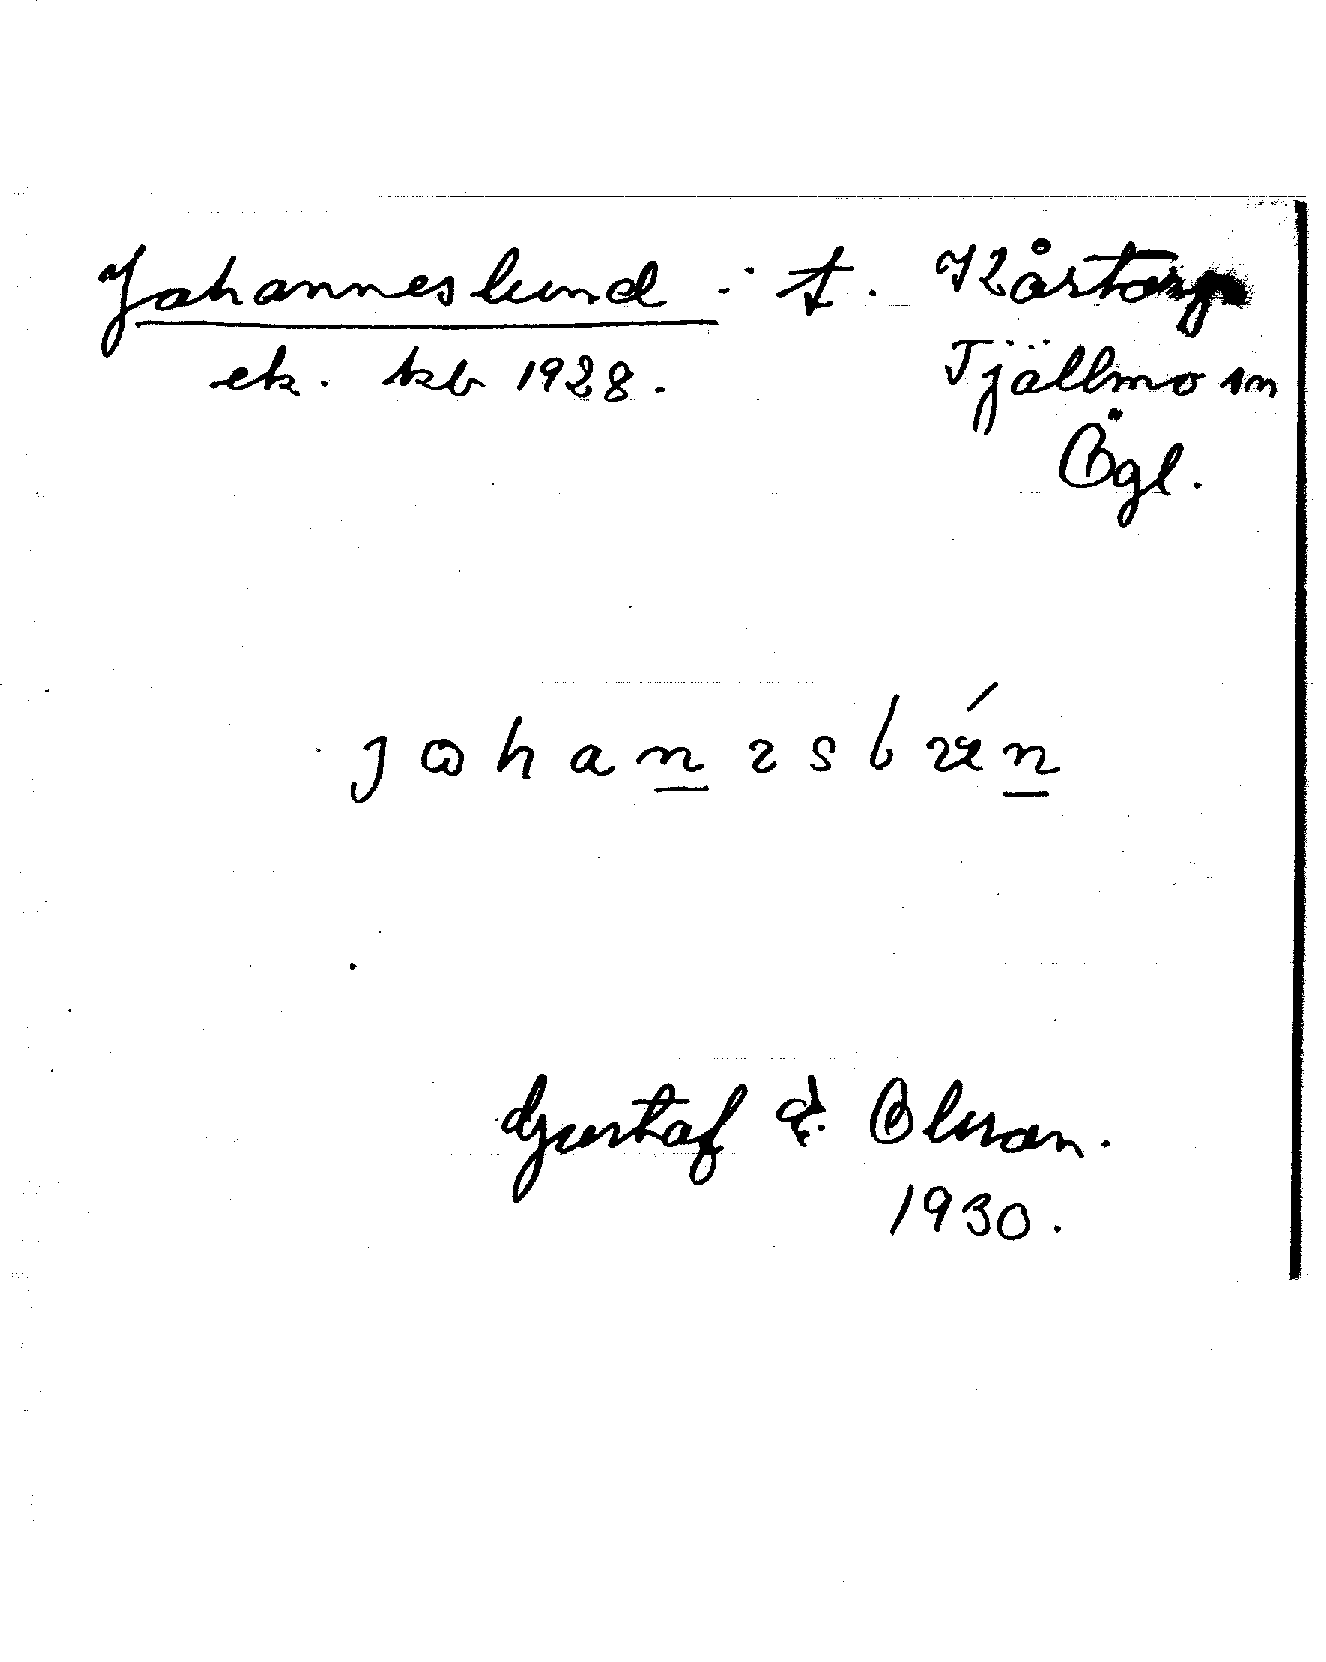 Johanneslund : t. Kårtorp
ek. kb 1928. Tjällmo sn
Ögl.
Gustaf A. Olsson.
1930.